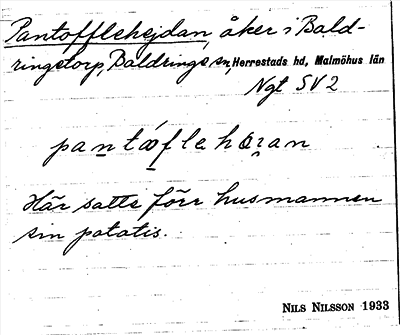 Pantofflehejdan, åker i Bald-
ringstorp, Baldrings sn, Herrestads hd, Malmöhus län
Ngt SV 2
Här satte förr husmannen
sin potatis.
NILS NILSSON 1933